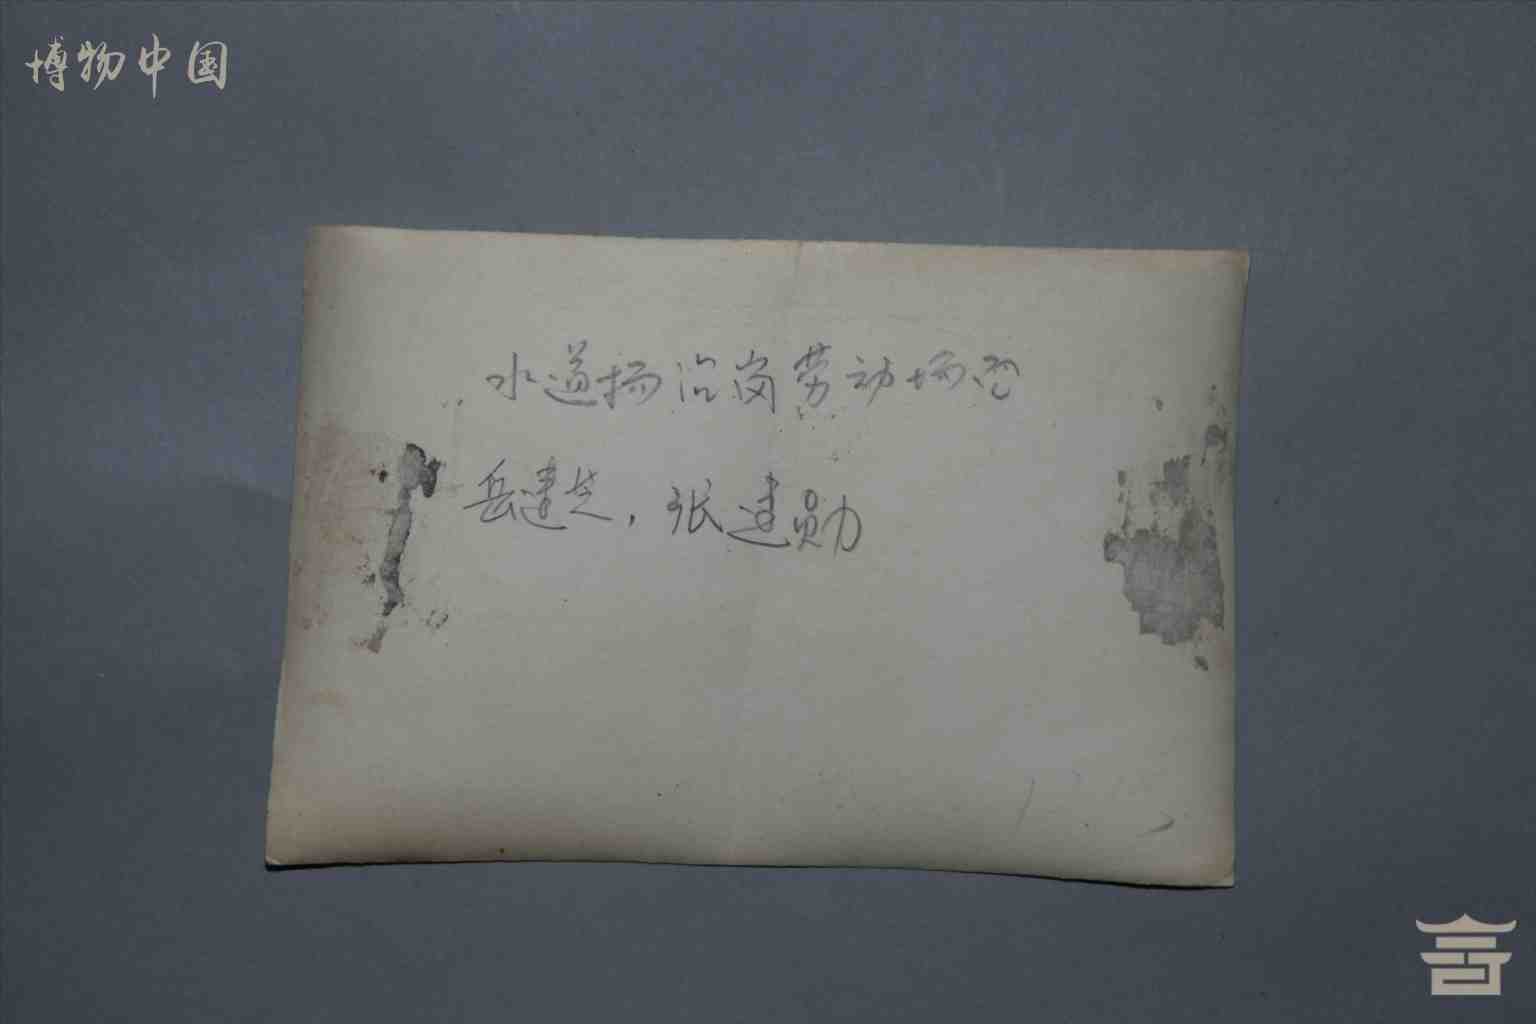 博物中国
水道杨治岗劳动场面
岳建芝，张建勋